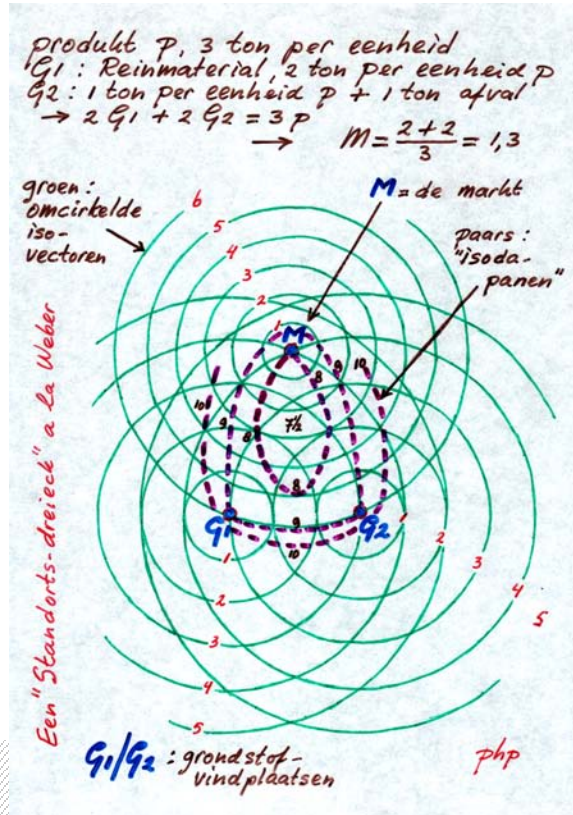 produkt P, 3 ton per eenheid
G1 : Reinmaterial, 2 ton per eenheid P
G2 : 1 ton per eenheid P + 1 ton afval
→ 2 G1 + 2 G2 = 3 P
→ M = 2 + 2 / 3 = 1,3
groen :
omcirkelde
iso-
vectoren
M = de markt
paars :
"isoda-
panen"
Een "Standorts-dreieck" a la Weber
6
5
4
3
2
1
M
8 9 10
10 9 8 7½
8
G1 9 G2
10
1 1
2 2
3 3
4 4
5 5
G1/G2 : grondstof-
vindplaatsen
php